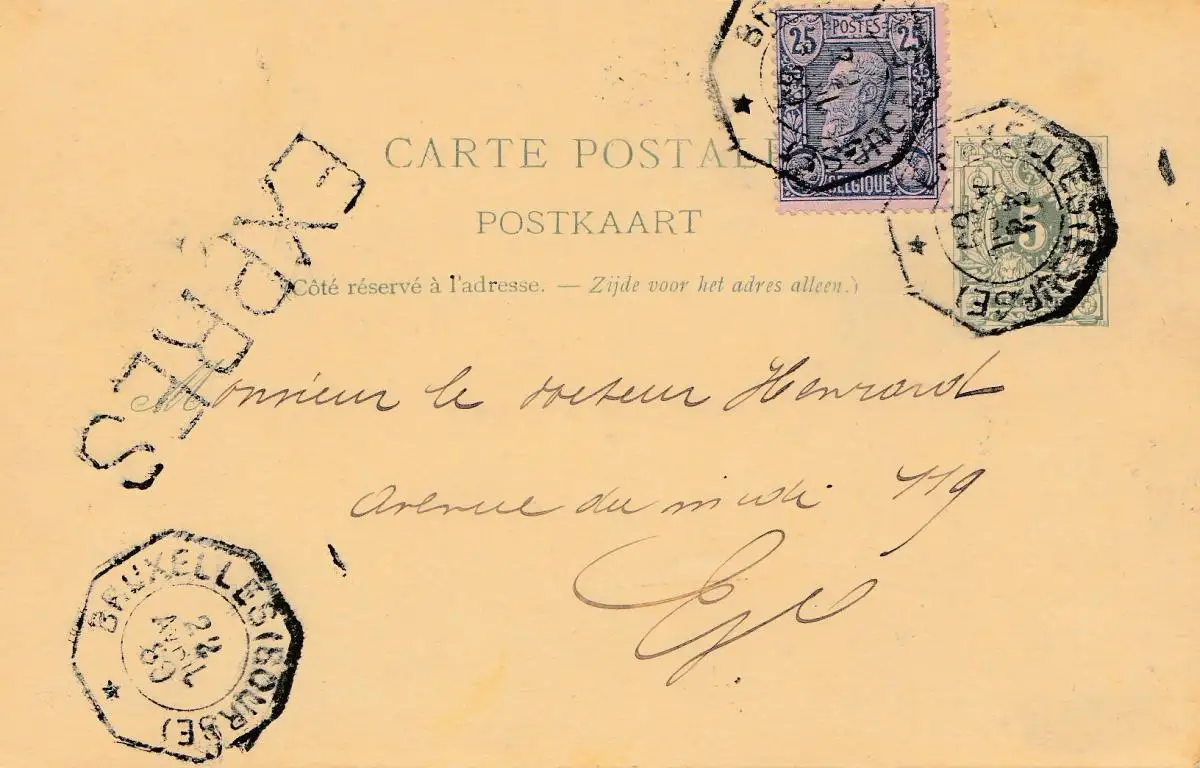 25 POSTES 25
BELGIQUE
CARTE POSTALE
POSTKAART
(Côté réservé à l'adresse. — Zijde voor het adres alleen.)
5
EXPRES
Monsieur le docteur Henrard
Avenue du midi 119
BRUXELLES (BOURSE)
BRUXELLES (BOURSE)
24
AVRIL